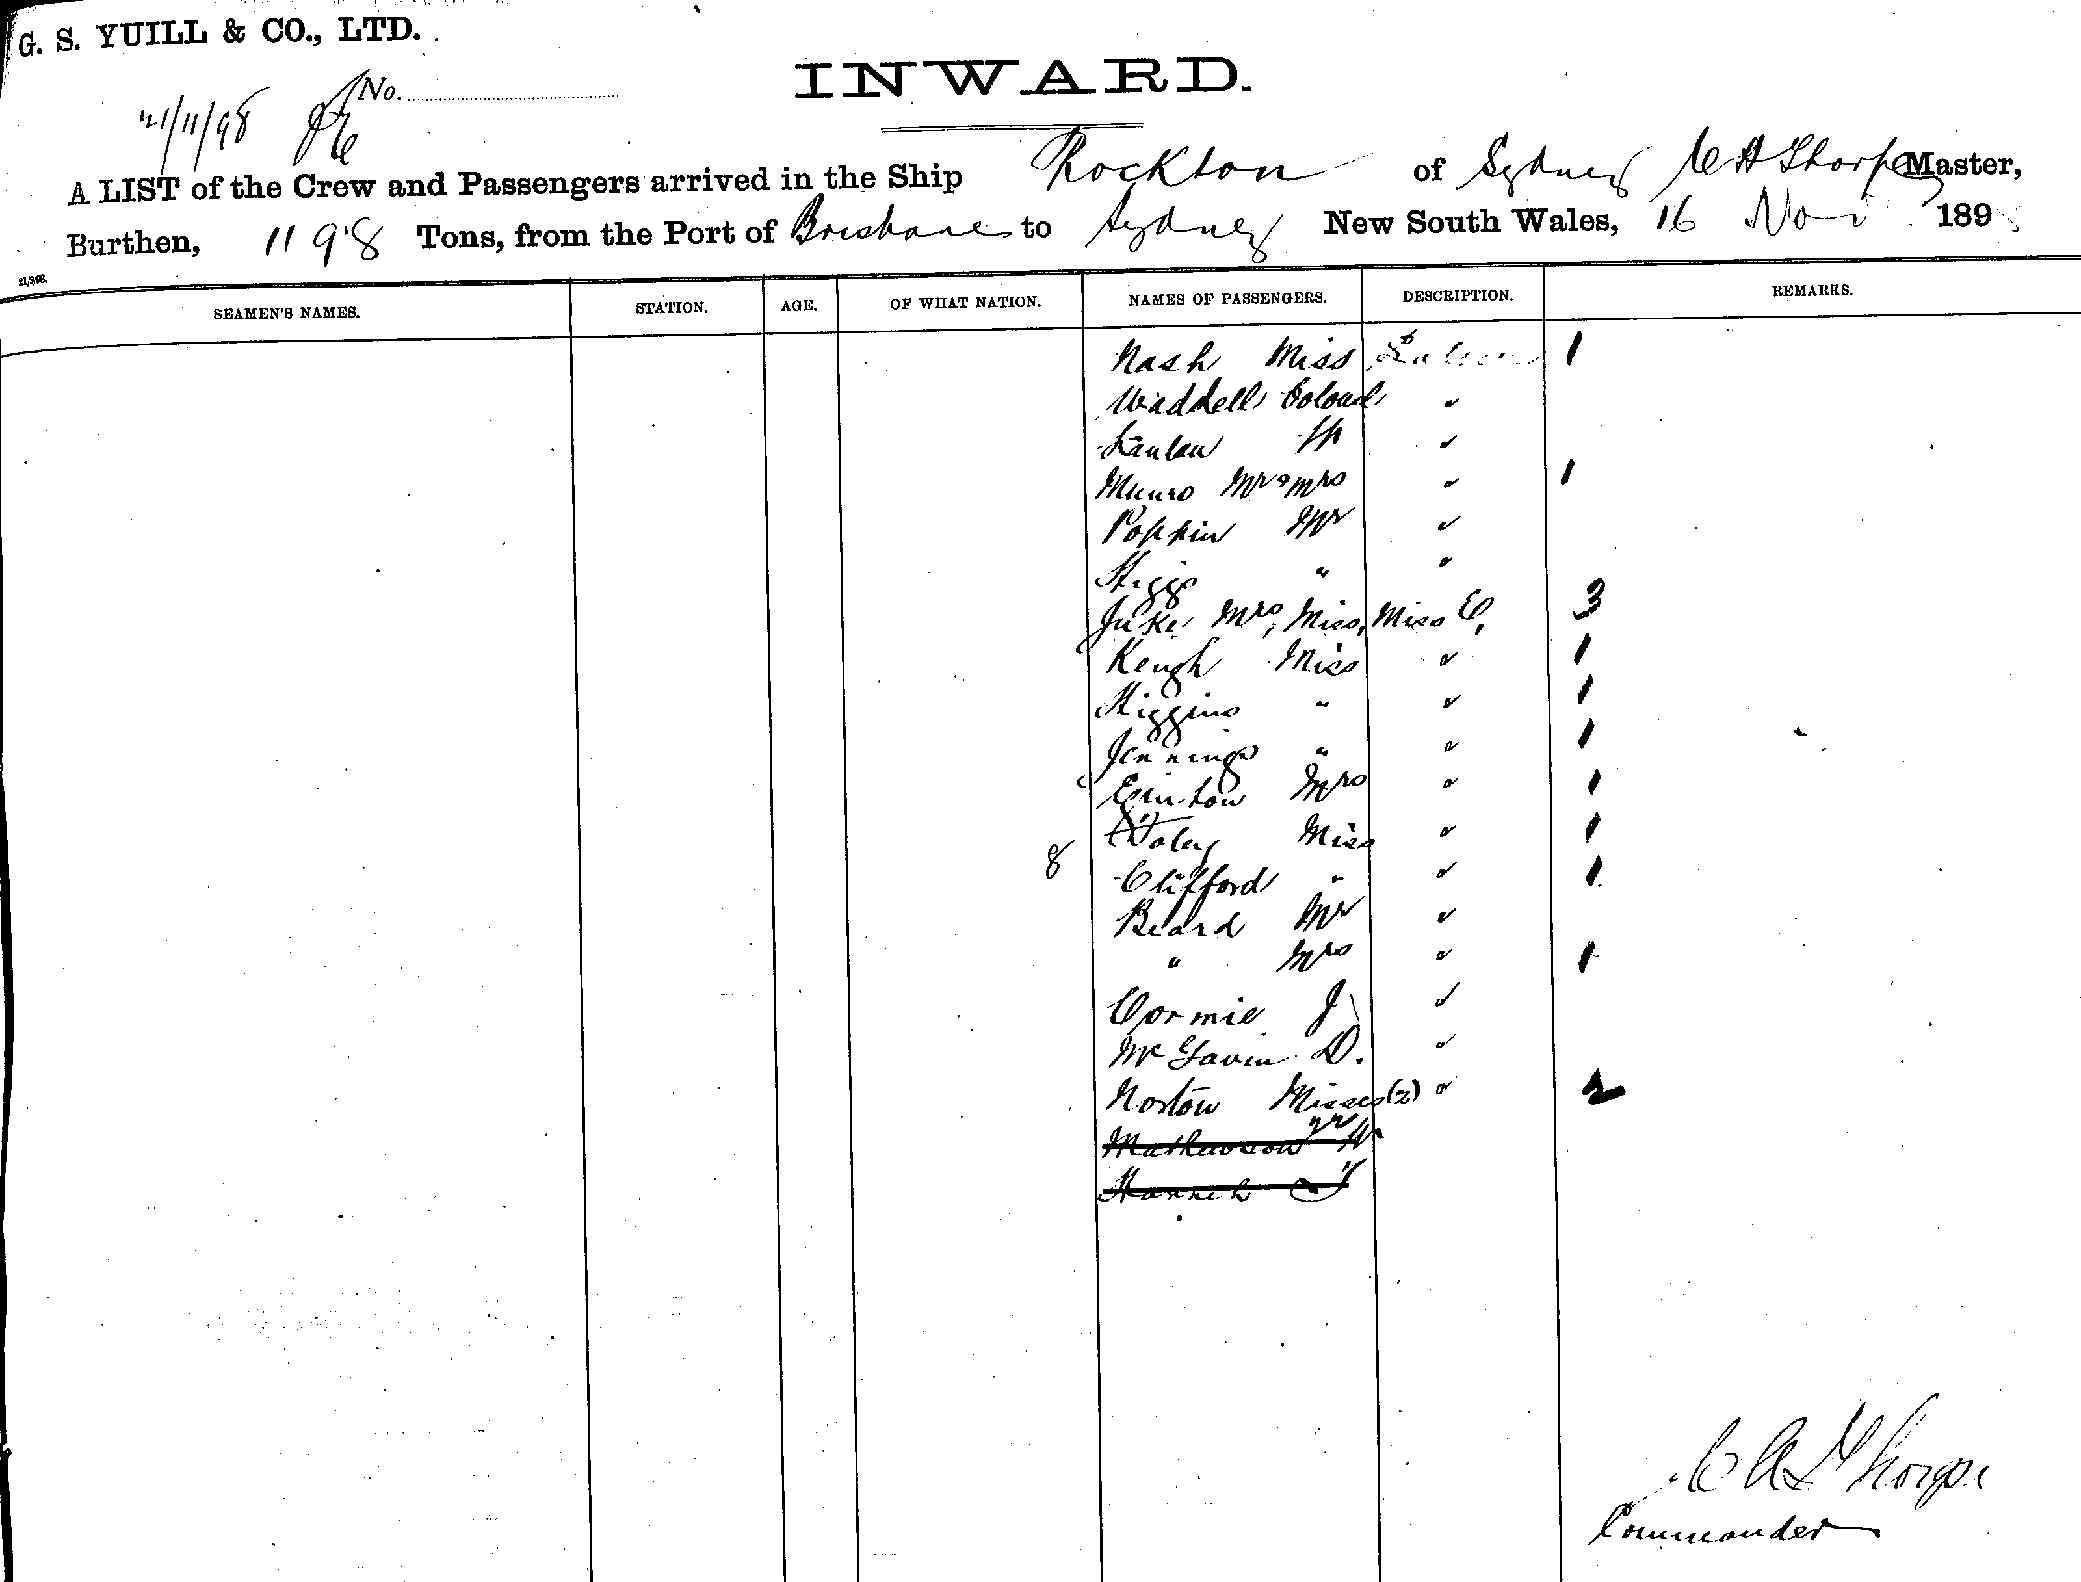 G. S. YUILL & CO., LTD.
No.
21/11/98
INWARD.
A LIST of the Crew and Passengers arrived in the Ship Rockton of Sydney C A Thorpe Master,
Burthen, 1198 Tons, from the Port of Brisbane to Sydney New South Wales, 16 Nov 1898
SEAMEN'S NAMES. STATION. AGE. OF WHAT NATION. NAMES OF PASSENGERS. DESCRIPTION. REMARKS.
Nash Miss Saloon 1
Waddell "
Scanlan Mr "
Munro Mr & Mrs " 1
Popkin Mr "
Higgs " "
Juke Mrs, Miss, Miss C, 3
Keugh Miss " 1
Higgins " " 1
Jennings " " 1
Mrs " 1
Foley Miss " 1
8 Clifford " " 1
Beard Mr "
" Mrs " 1
Cormie J "
McGavin D. "
Norton Misses (2) " 2
Mathewson
C A Thorpe
Commander